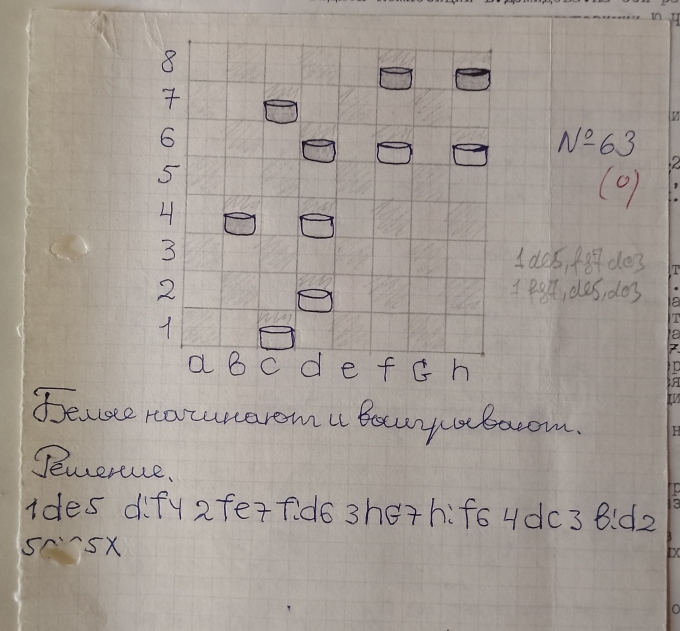 8
7
6
5
4
3
2
1
a b c d e f G h
№63
(0)
1 de5, fg7 dc3
1 fg7, de5, dc3
Белые начинают и выигрывают.
Решение.
1de5 d:f4 2fe7 f:d6 3hG7 h:f6 4dc3 b:d2
5X